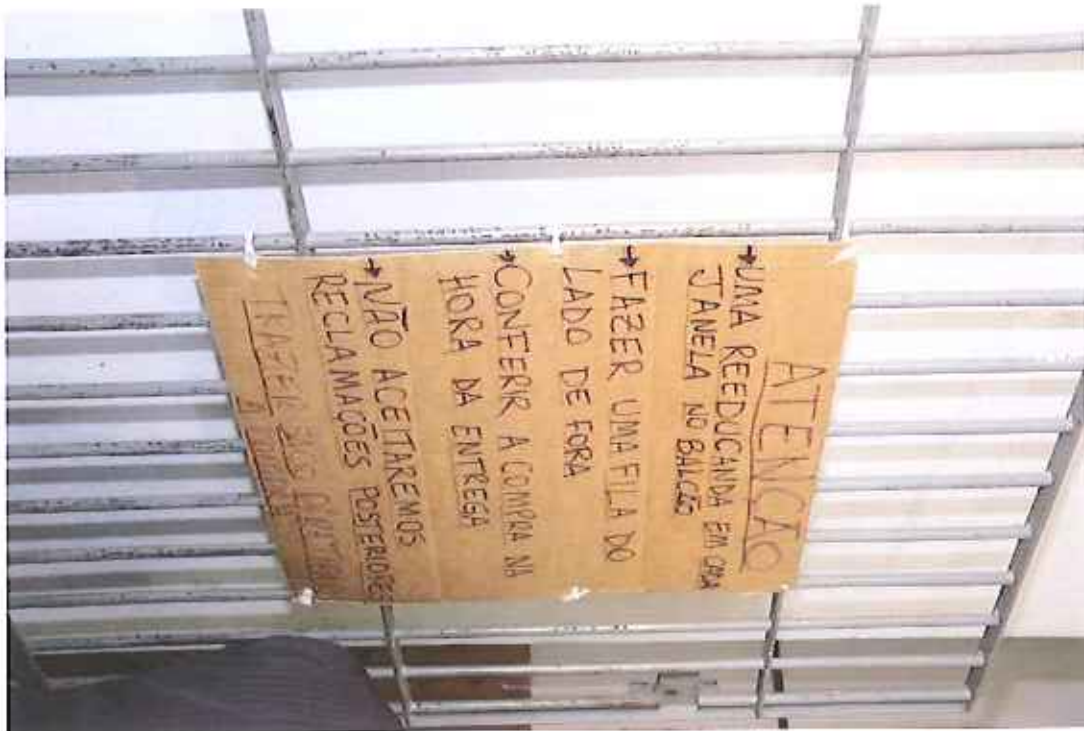 ATENÇÃO
→UMA REEDUCANDA EM CADA
JANELA NO BALCÃO
→FAZER UMA FILA DO
LADO DE FORA
→CONFERIR A COMPRA NA
HORA DA ENTREGA
→NÃO ACEITAREMOS
RECLAMAÇÕES POSTERIORES
TRAZER